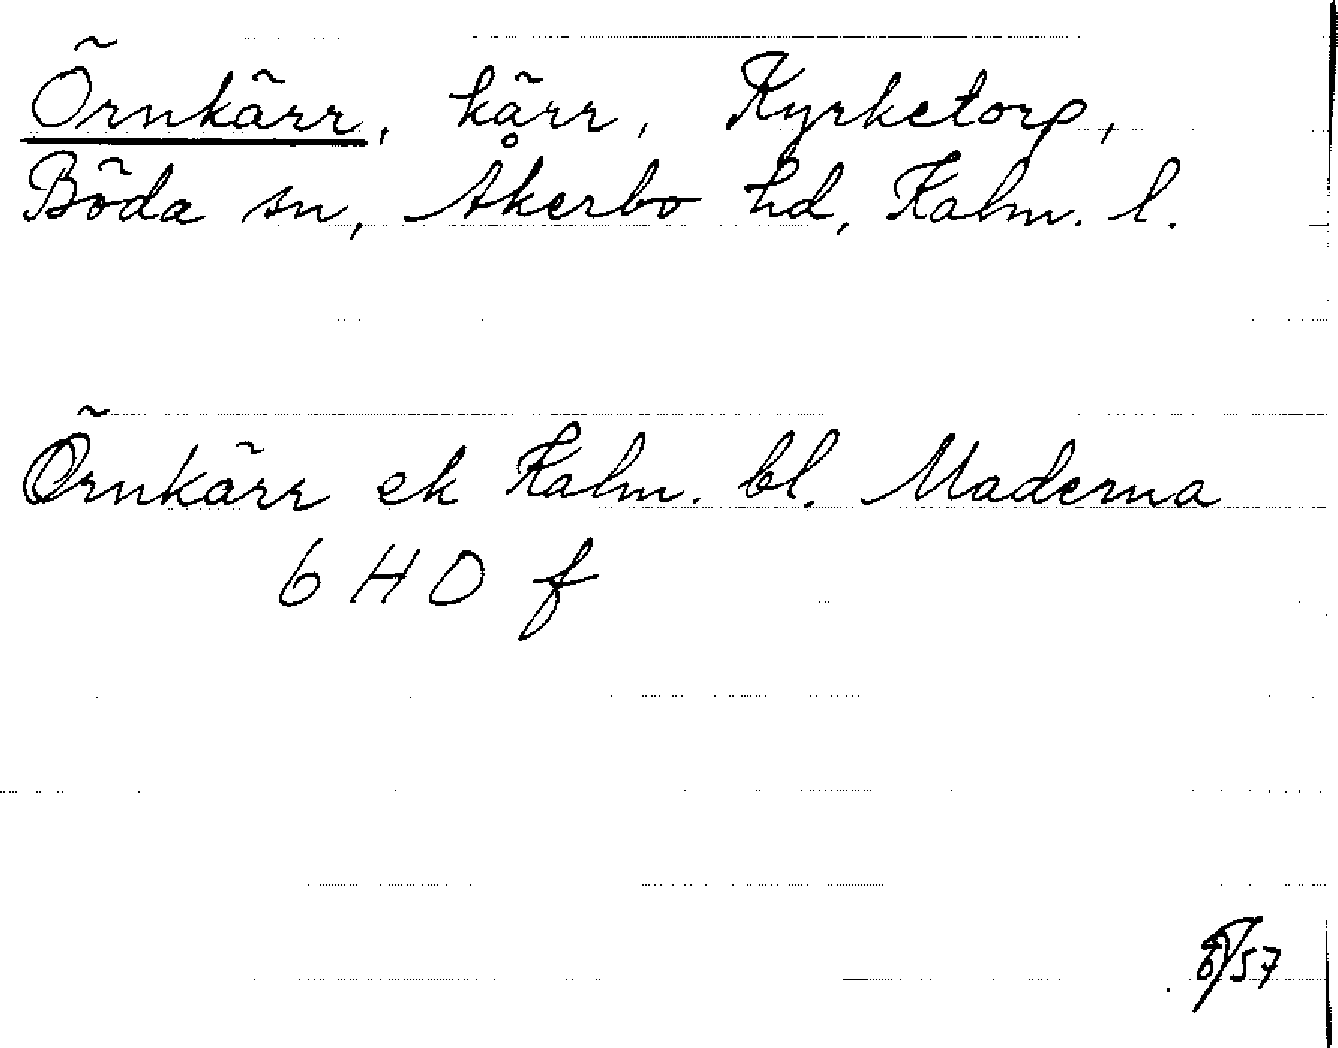 Örnkärr, kärr, Kyrketorp,
Böda sn, Åkerbo hd, Kalm. l.
Örnkärr ek Kalm. bl. Maderna
6 H O f
57